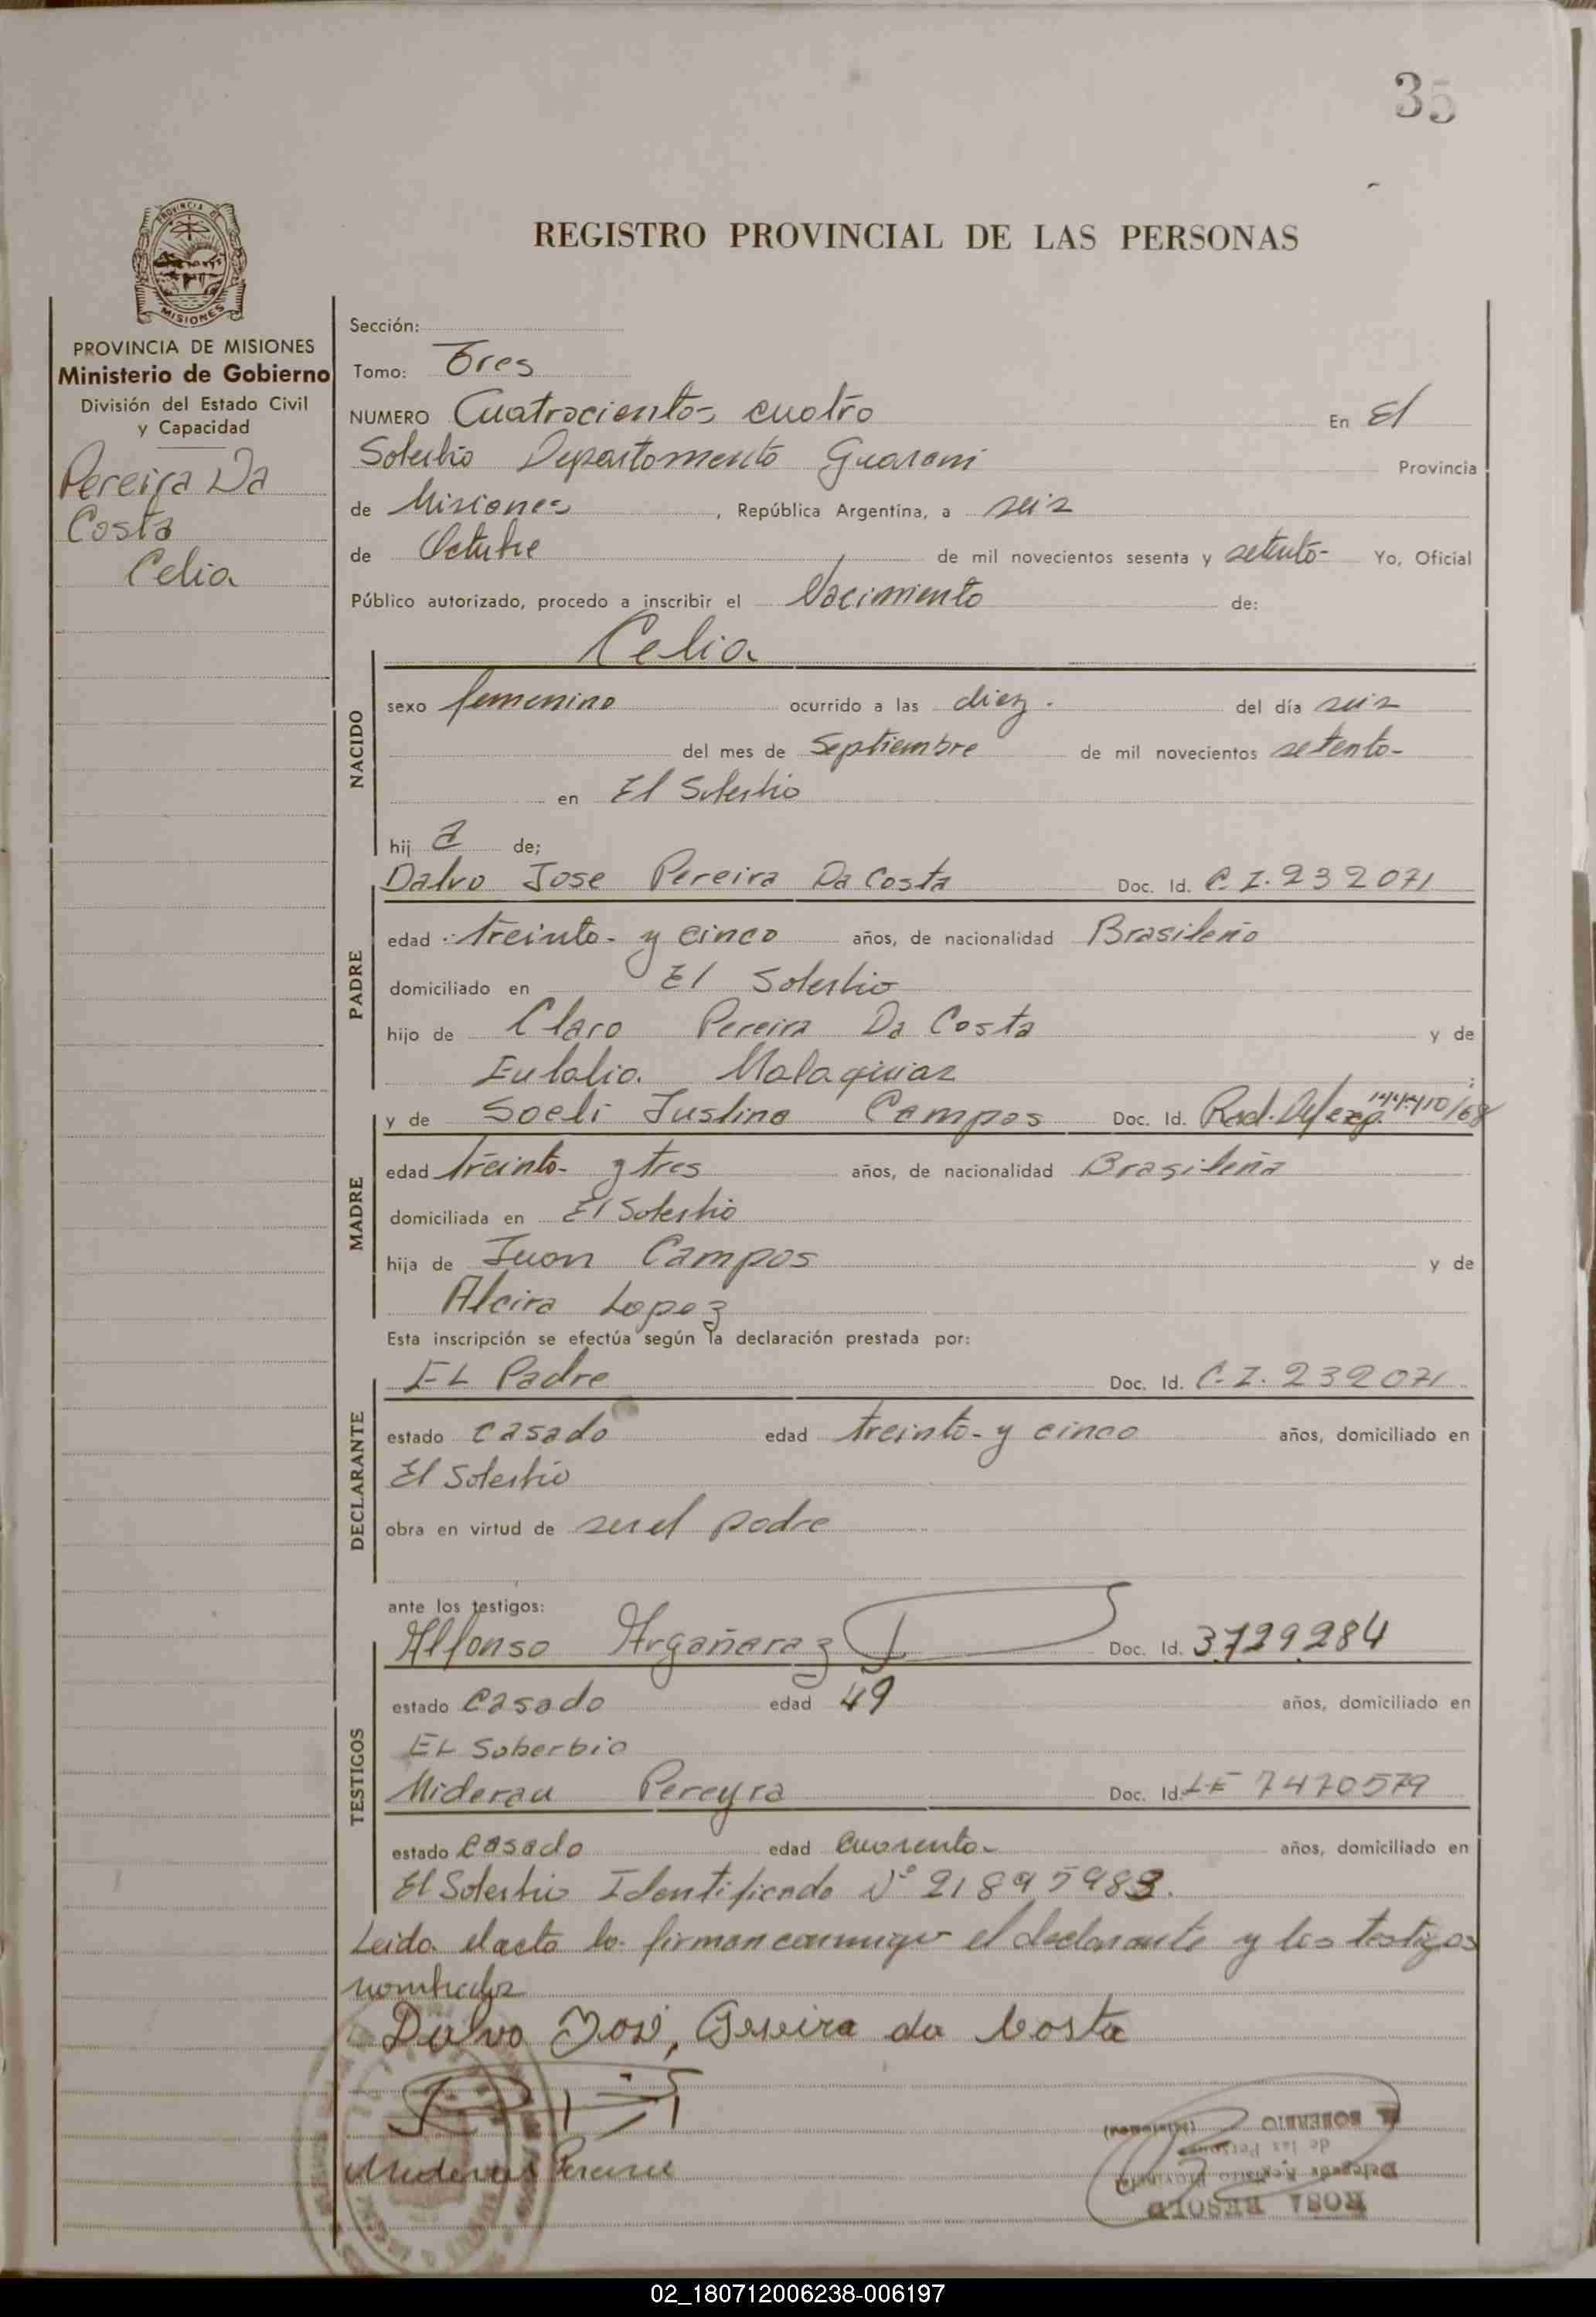 35
PROVINCIA DE MISIONES
REGISTRO PROVINCIAL DE LAS PERSONAS
PROVINCIA DE MISIONES
Ministerio de Gobierno
División del Estado Civil
y Capacidad
Pereira Da
Costa
Celia
Sección:
Tomo: Tres
NUMERO Cuatrocientos cuatro En El
Soberbio Departamento Guarani Provincia
de Misiones, República Argentina, a seis
de Octubre de mil novecientos sesenta y setenta- Yo, Oficial
Público autorizado, procedo a inscribir el Nacimiento de:
Celia
NACIDO
sexo femenino ocurrido a las diez. del día seis
del mes de Septiembre de mil novecientos setenta-
en El Soberbio
hij a de;
PADRE
Dalvo Jose Pereira Da Costa Doc. Id. C.I. 232071
edad treinta y cinco años, de nacionalidad Brasileño
domiciliado en El Soberbio
hijo de Claro Pereira Da Costa y de
Eulalia Malaquias ;
MADRE
y de Soeli Justina Campos Doc. Id. Rad. /68
edad treinta y tres años, de nacionalidad Brasileña
domiciliada en El Soberbio
hija de Juan Campos y de
Alcira Lopez
Esta inscripción se efectúa según la declaración prestada por:
DECLARANTE
EL Padre Doc. Id. C.I. 232071
estado casado edad treinta y cinco años, domiciliado en
El Soberbio
obra en virtud de ser el padre
ante los testigos:
TESTIGOS
Alfonso Argañaraz Doc. Id. 3.729.284
estado casado edad 49 años, domiciliado en
EL Soberbio
Miderau Pereyra Doc. Id. LE 7470579
estado casado edad cuarenta- años, domiciliado en
El Soberbio Identificado Nº 21895983.
Leida el acta la firman conmigo el declarante y los testigos
nombrados
Dalvo José, Pereira da Costa
EL SOBERBIO (Misiones)
de las Personas
Delegada Registro Provincial
ROSA BESOLD
02_180712006238-006197